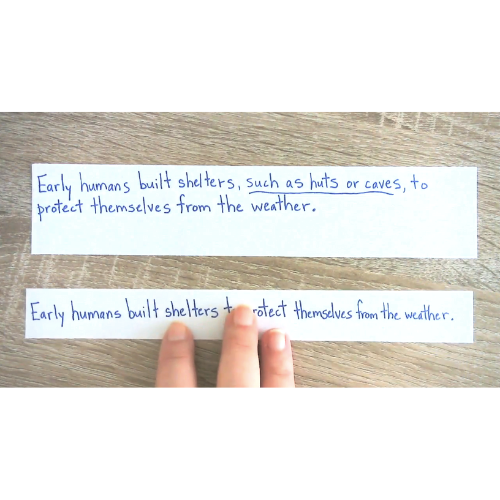 Early humans built shelters, such as huts or caves, to
protect themselves from the weather.
Early humans built shelters to protect themselves from the weather.